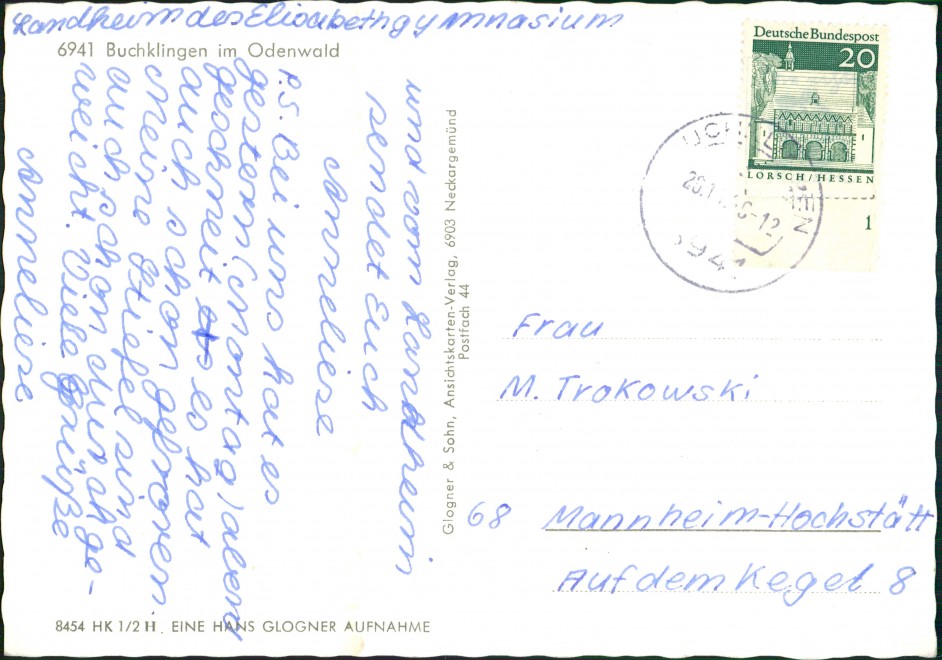 Landheim des Elisabethgymnasium
6941 Buchklingen im Odenwald
und vom Landheim
sendet Euch
Anneliese
P.S. Bei uns hat es
gestern (Montag) abend
geschneit es hat
auch schon gefroren.
Meine Stiefel sind
auch schon durchge-
weicht. Viele Grüße
Anneliese
8454 HK 1/2 H. EINE HANS GLOGNER AUFNAHME
Glogner & Sohn, Ansichtskarten-Verlag, 6903 Neckargemünd
Postfach 44
Deutsche Bundespost
20
LORSCH/HESSEN
1
Frau
M. Trokowski
68 Mannheim-Hochstätt
Auf dem Kegel 8